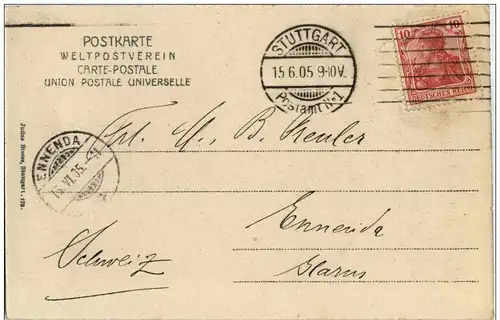 POSTKARTE
WELTPOSTVEREIN
CARTE-POSTALE
UNION POSTALE UNIVERSELLE
STUTTGART
15.6.05 9-10V.
Postamt No 1
10 10
DEUTSCHES REICH
ENNENDA
16.VI.05.
B.
Ennenda
Glarus
Schweiz
Stuttgart